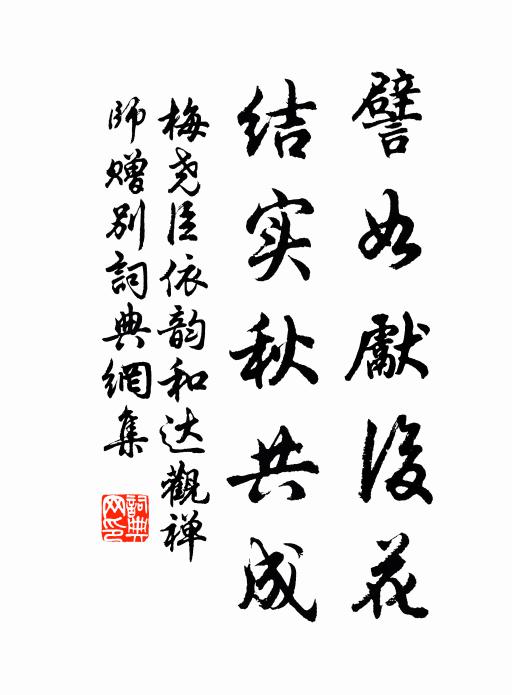 譬如獻後花
结实秋共成
梅尧臣依韵和达觀禅
师赠别詞典網集
詞典
网印